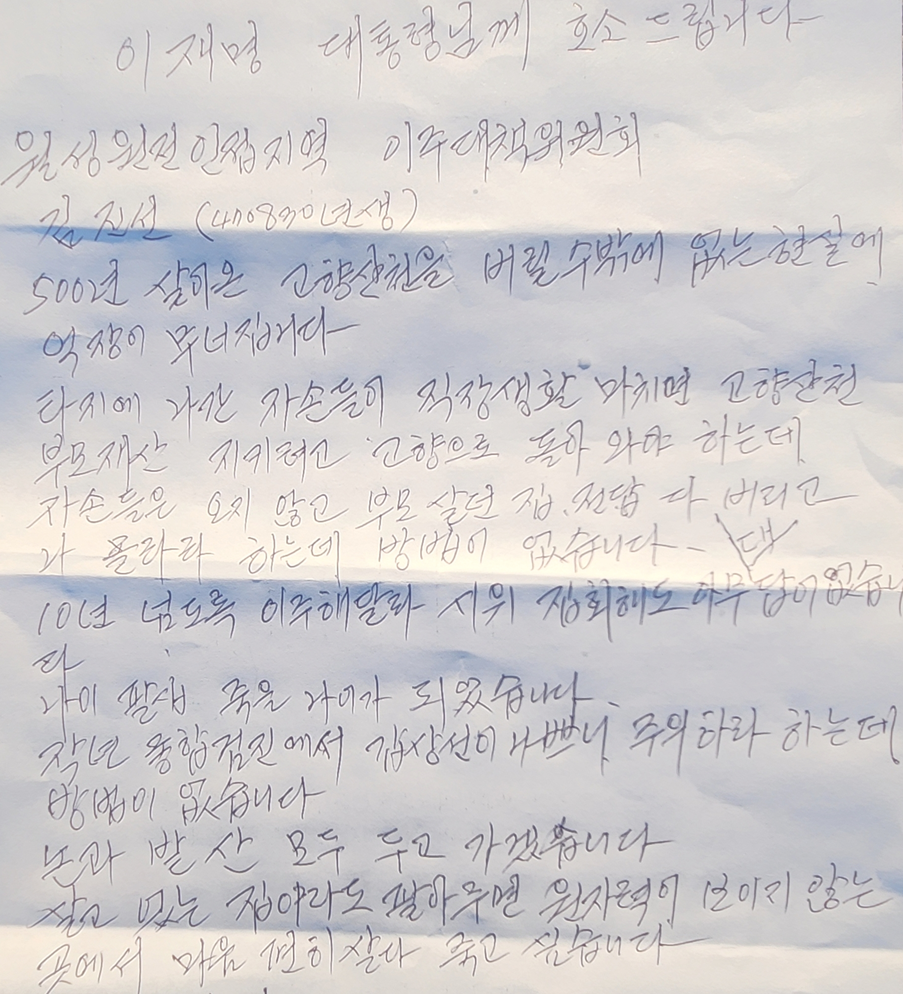 이재명 대통령님께 호소 드립니다
월성원전인접지역 이주대책위원회
김진선 (470830년생)
500년 살아온 고향산천을 버릴수밖에 없는 현실에
억장이 무너집니다
타지에 나간 자손들이 직장생활 마치면 고향산천
부모재산 지키려고 고향으로 돌아 와야 하는데
자손들은 오지 않고 부모 살던 집.전답 다 버리고
하는데 방법이 없습니다
10년 넘도록 이주해달라 시위 집회해도 아무 답이 없습니
다
나이 팔십 죽을 나이가 되었습니다.
작년 종합검진에서 갑상선이 나쁘니 주의하라 하는데
방법이 없습니다
논과 밭 산 모두 두고 가겠습니다
살고 있는 집이라도 팔아주면 원자력이 보이지 않는
곳에서 마음 편히 살다 죽고 싶습니다